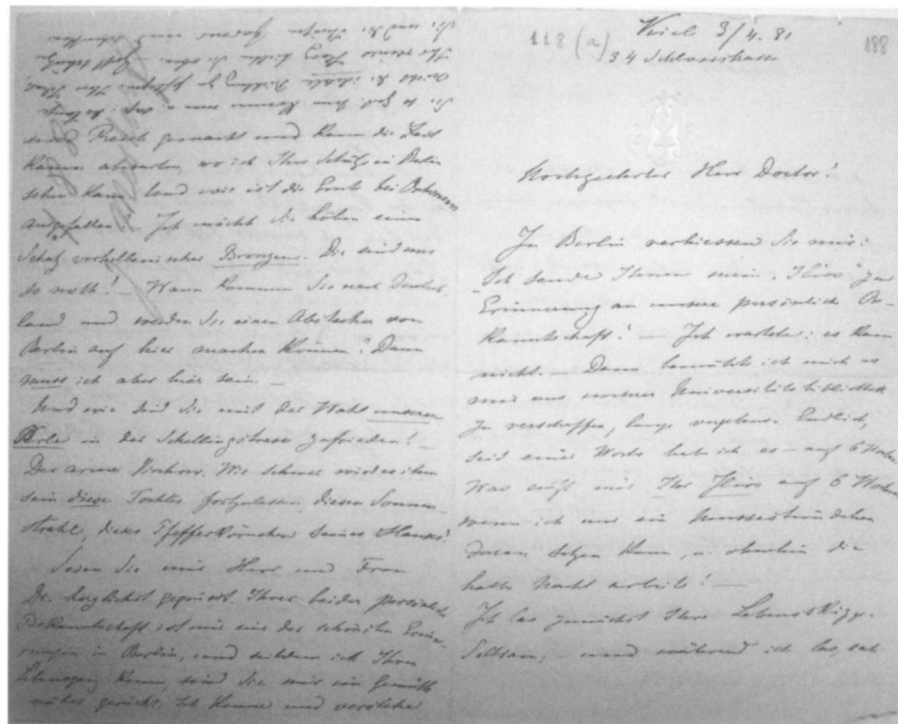 118 (a)
Kiel 3/4. 81
188
34 Schlossstrasse
Hochgeehrter Herr Doctor!
In Berlin verhiessen Sie mir:
„Ich sende Ihnen mein „Ilios" zur
Erinnerung an unsere persönliche Be-
kanntschaft! — Ich wartete: es kam
nicht. — Dann bemühte ich mich es
mir aus unserer Universitätsbibliothek
zu verschaffen, lange vergebens. Endlich,
seit einer Woche hab ich es — auf 6 Wochen
Was nützt mir Ihr Ilios auf 6 Wochen
wenn ich nur ein Mussestündchen
daran setzen kann, u. ohnehin die
halbe Nacht arbeite! —
Ich las zunächst Ihre Lebensskizze.
Seltsam, — und während ich las, sah
und kann die Zeit
kaum abwarten, wo ich Ihre Schätze in Berlin
sehen kann. Und wie ist die Ernte bei Orchomenos
ausgefallen? Ich möchte Sie höben einen
Schatz vorhellenischer Bronzen. Die sind uns
so noth! — Wann kommen Sie nach Deutsch-
land und werden Sie einen Abstecher von
Berlin auf hier machen können? Dann
muss ich aber hier sein. —
Und wie sind Sie mit der Wahl unserer
in der Schellingstrasse zufrieden! —
Der arme Virchow. Wie schwer wird es ihm
sein diese Tochter fortzulassen, diesen Sonnen-
strahl, dieses Pfefferkörnchen seines Hauses!
Seien Sie mir Herr und Frau
Dr. herzlichst gegrüsst. Ihrer beider persönliche
Bekanntschaft ist mir eine der schönsten Erin-
nerungen in Berlin, und seitdem ich Ihren
Lebensgang kenne, sind Sie mir im Gemüth
näher gerückt. Ich kenne und verstehe